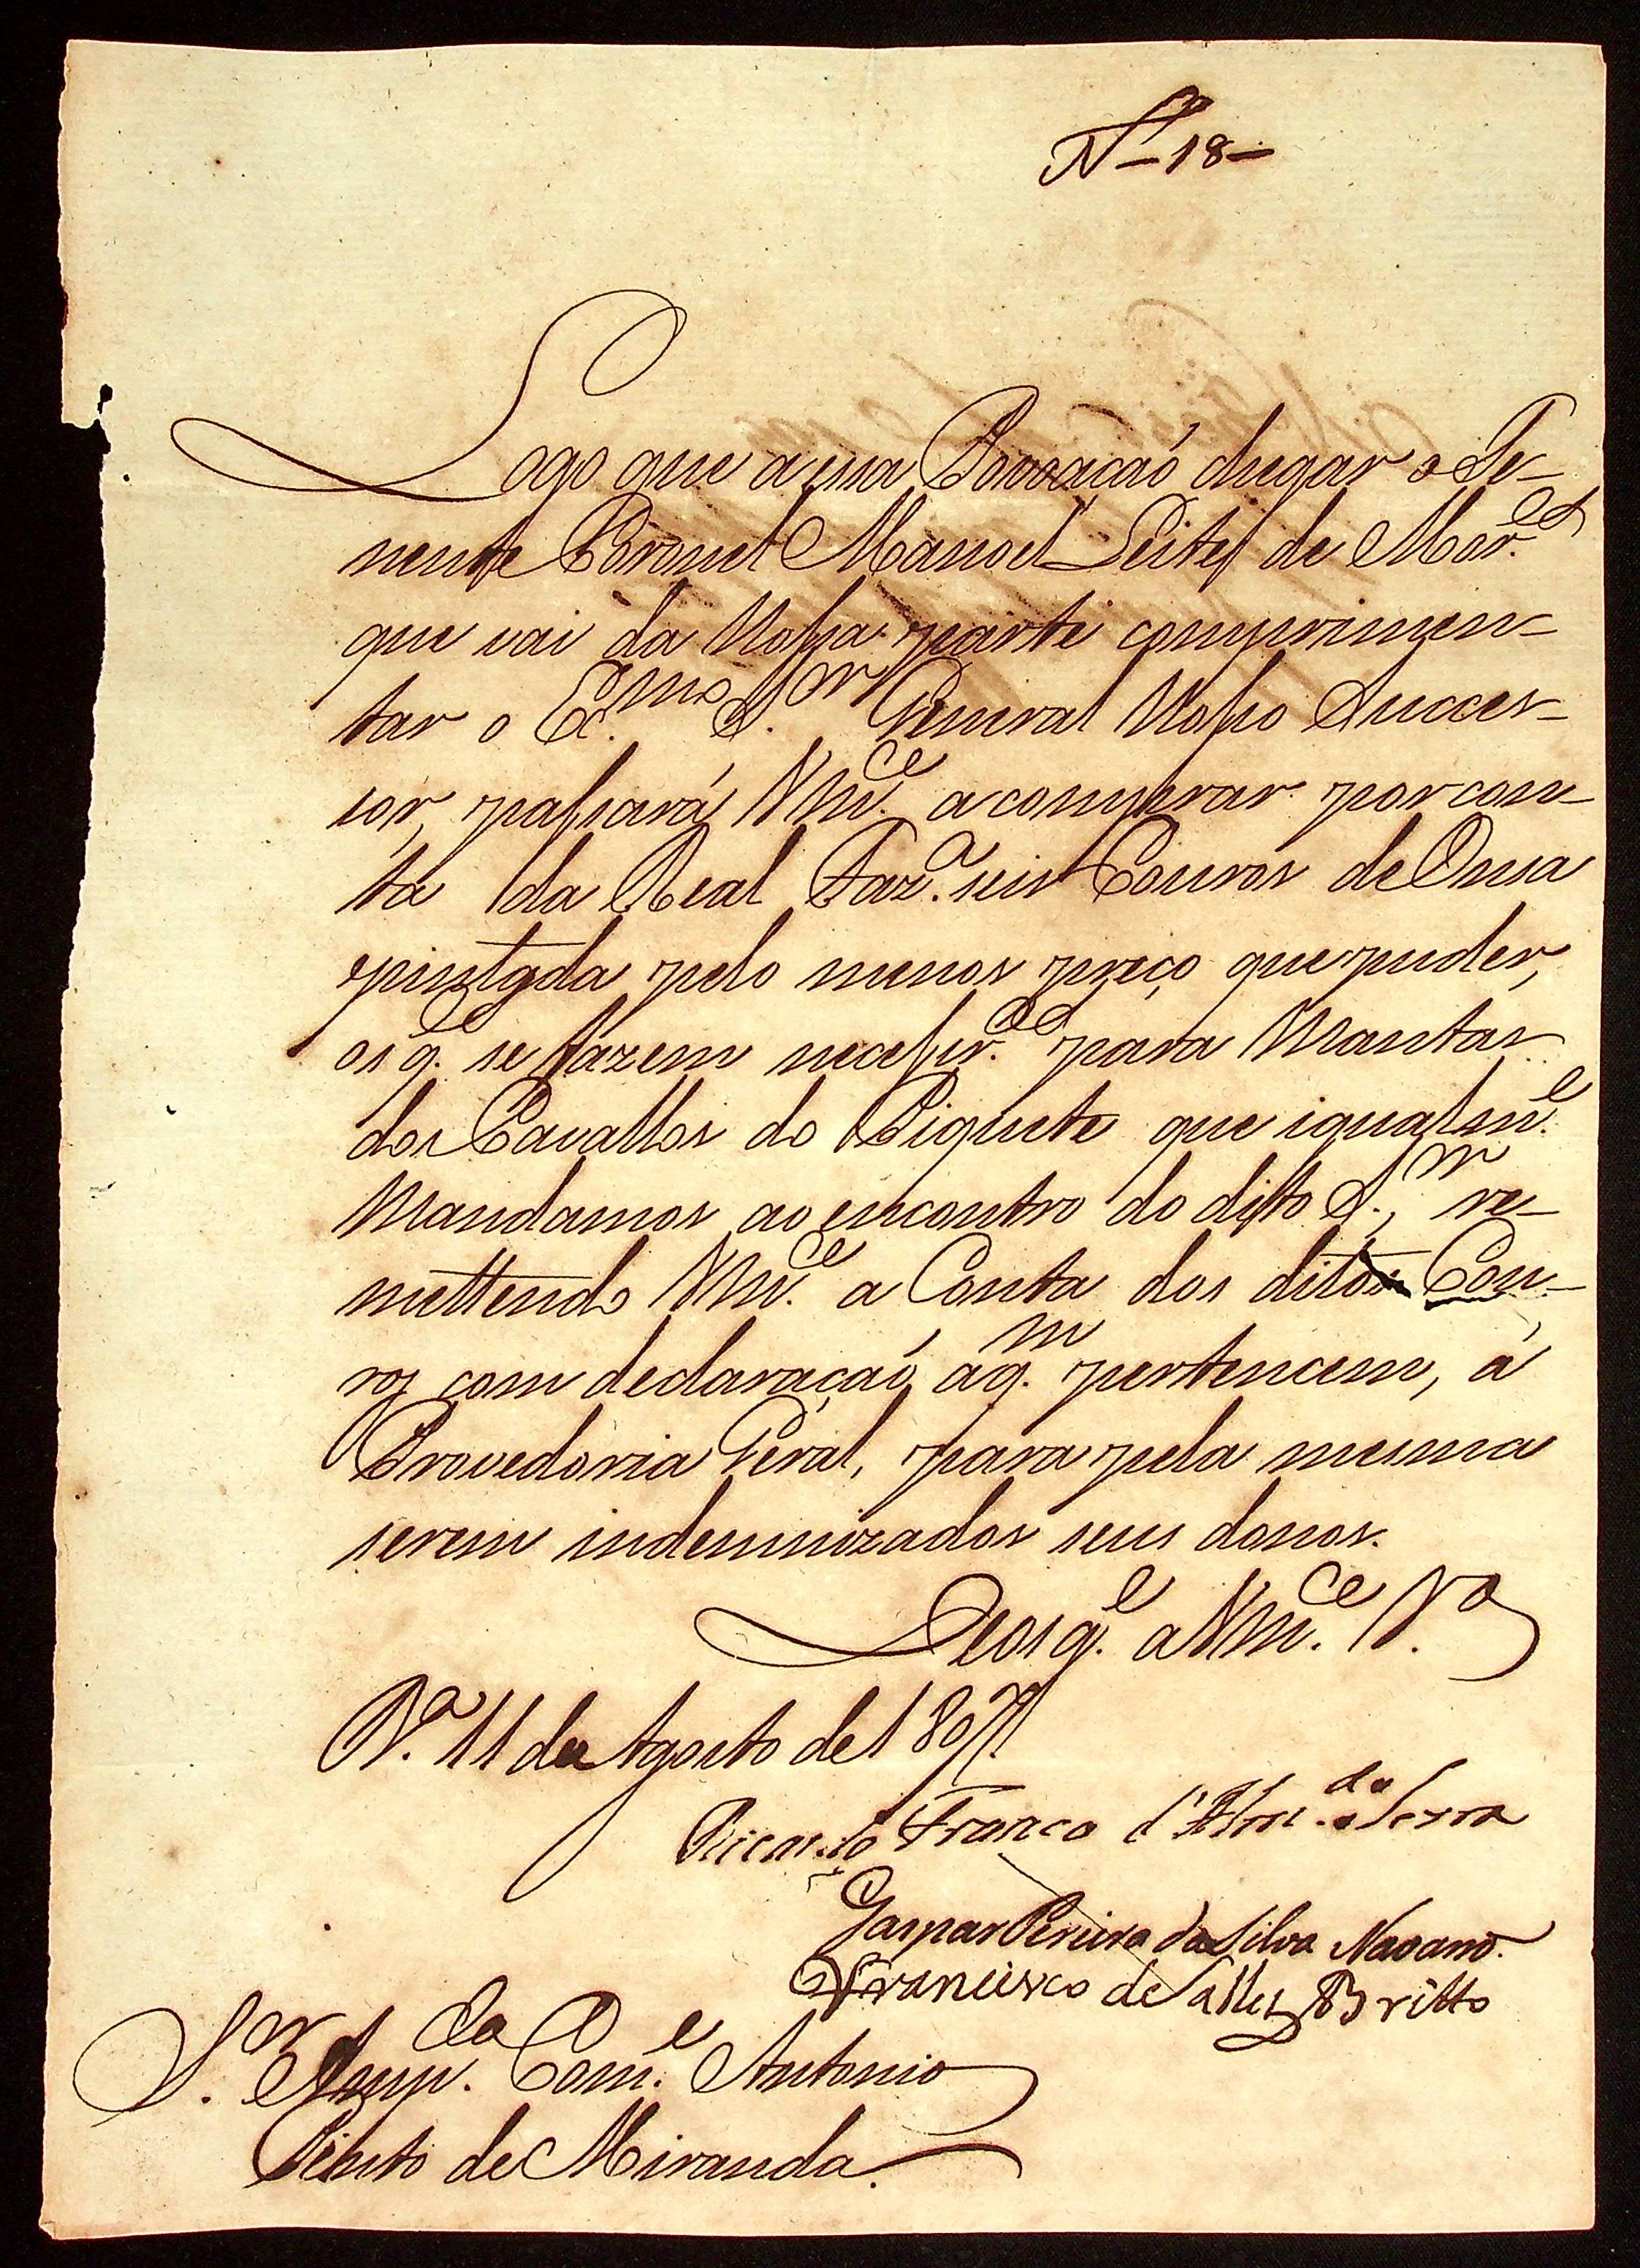 N.º 18
Logo que a essa Povoaçaõ chegar o Te-
nente Coronel Manoel Leite de Mor.es
que vai da Nossa parte comprimen-
tar o Ex.mo S.or General Nosso Succes-
sor, passará Vm.ce a comprar por con-
ta da Real Faz.a seis Couros de Onsa
pintada pelo menos preço que puder,
os q.e se fazem necessr.os para Mantas
dos Cavallos do Piquete que igualm.e
Mandamos ao encontro do dito S.or, re-
mettendo Vm.ce a Conta dos ditos Cou-
ros com declaraçaõ a q.m pertencem, á
Provedoria Geral, para pela mesma
serem indemnizados seus donos.
Deos g.e a Vm.ce V.a
11 de Agosto de 1807
Ricardo Franco d'Alm.da Serra
Gaspar Pereira da Silva Navarro.
Francisco de Salles Britto
S.or Com.e Antonio
Pinto de Miranda.